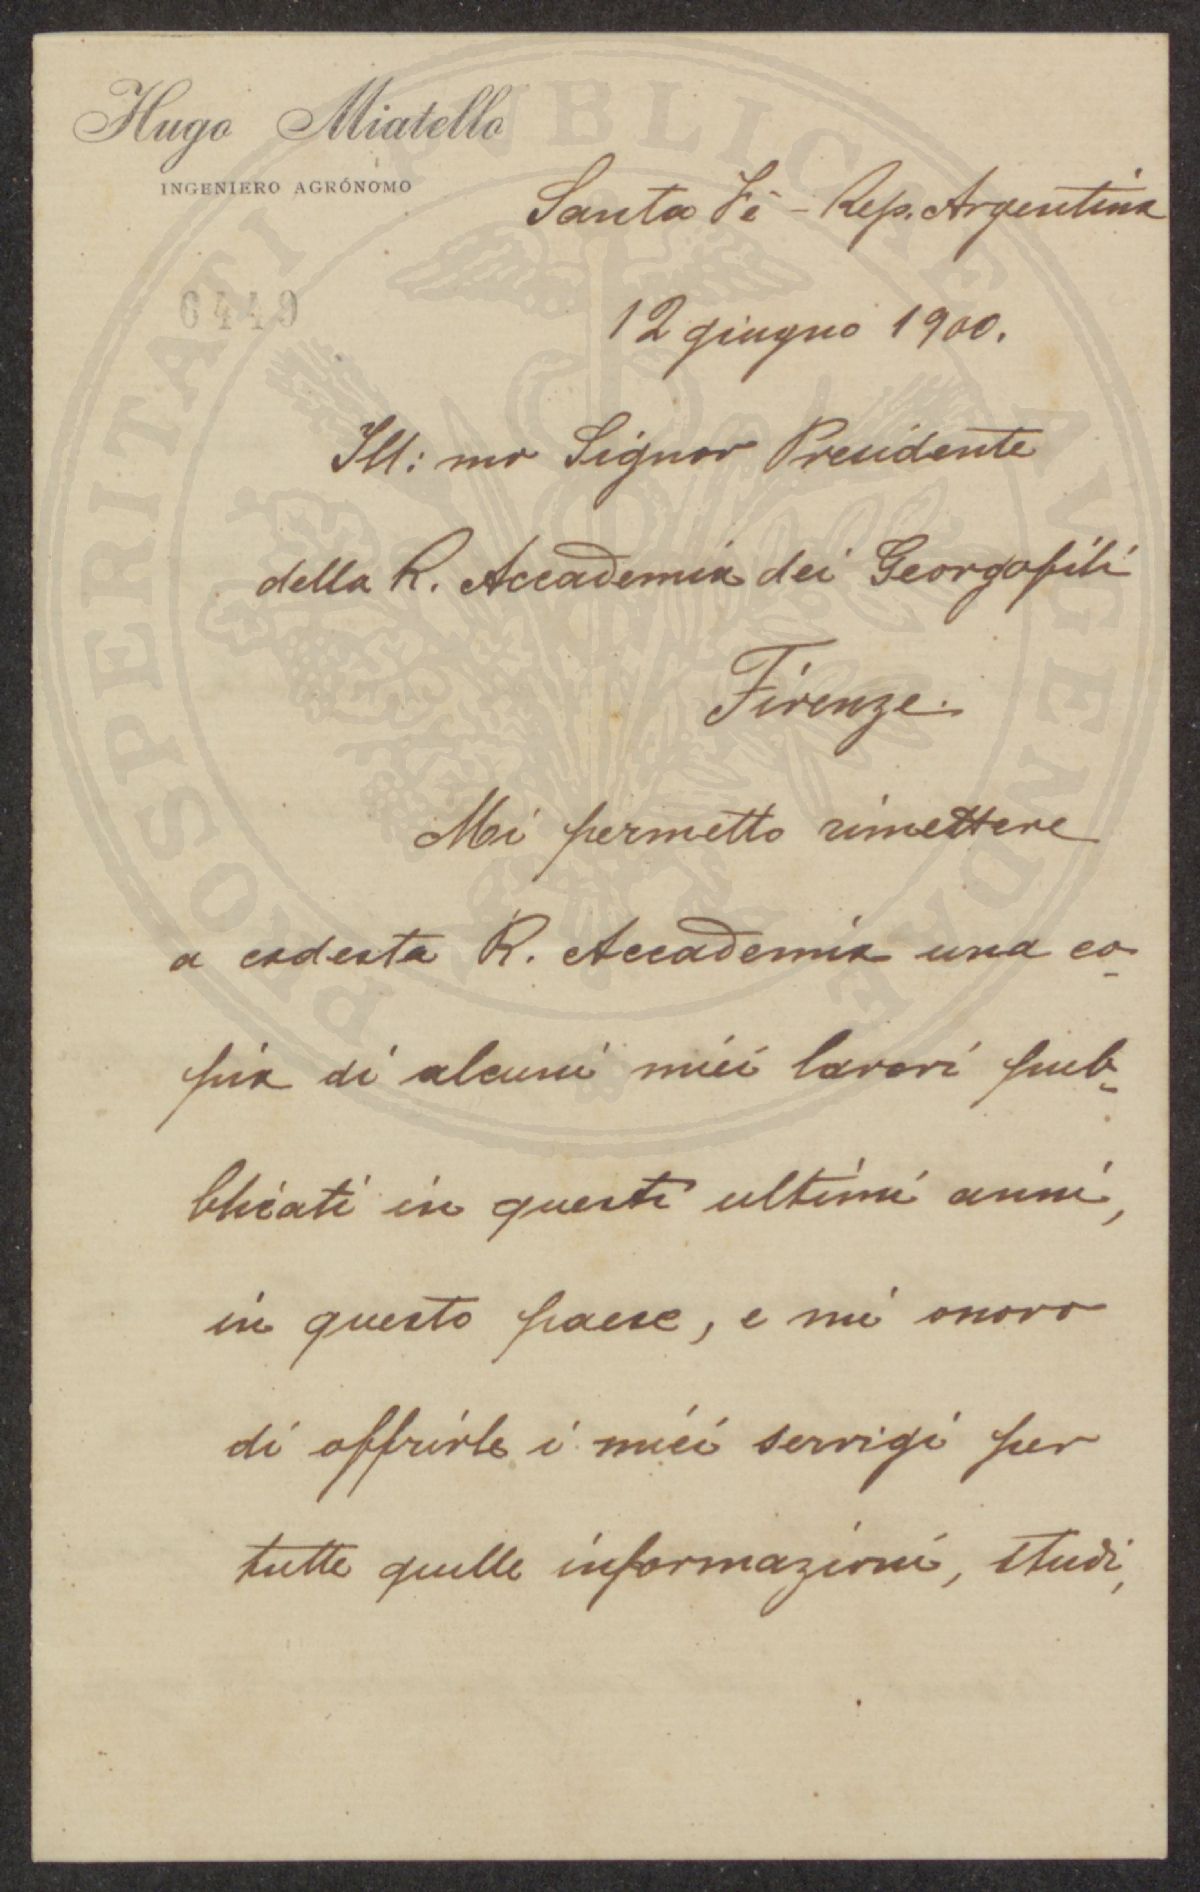 Hugo Miatello
INGENIERO AGRÓNOMO
Santa Fè - Rep. Argentina
6449
12 giugno 1900.
Ill: mo Signor Presidente
della R. Accademia dei Georgofili
Firenze.
Mi permetto rimettere
a codesta R. Accademia una co-
pia di alcuni miei lavori pub-
blicati in questi ultimi anni,
in questo paese, e mi onoro
di offrirle i miei servigi per
tutte quelle informazioni, studi,
PROSPERITATI PVBLICAE AVGENDAE